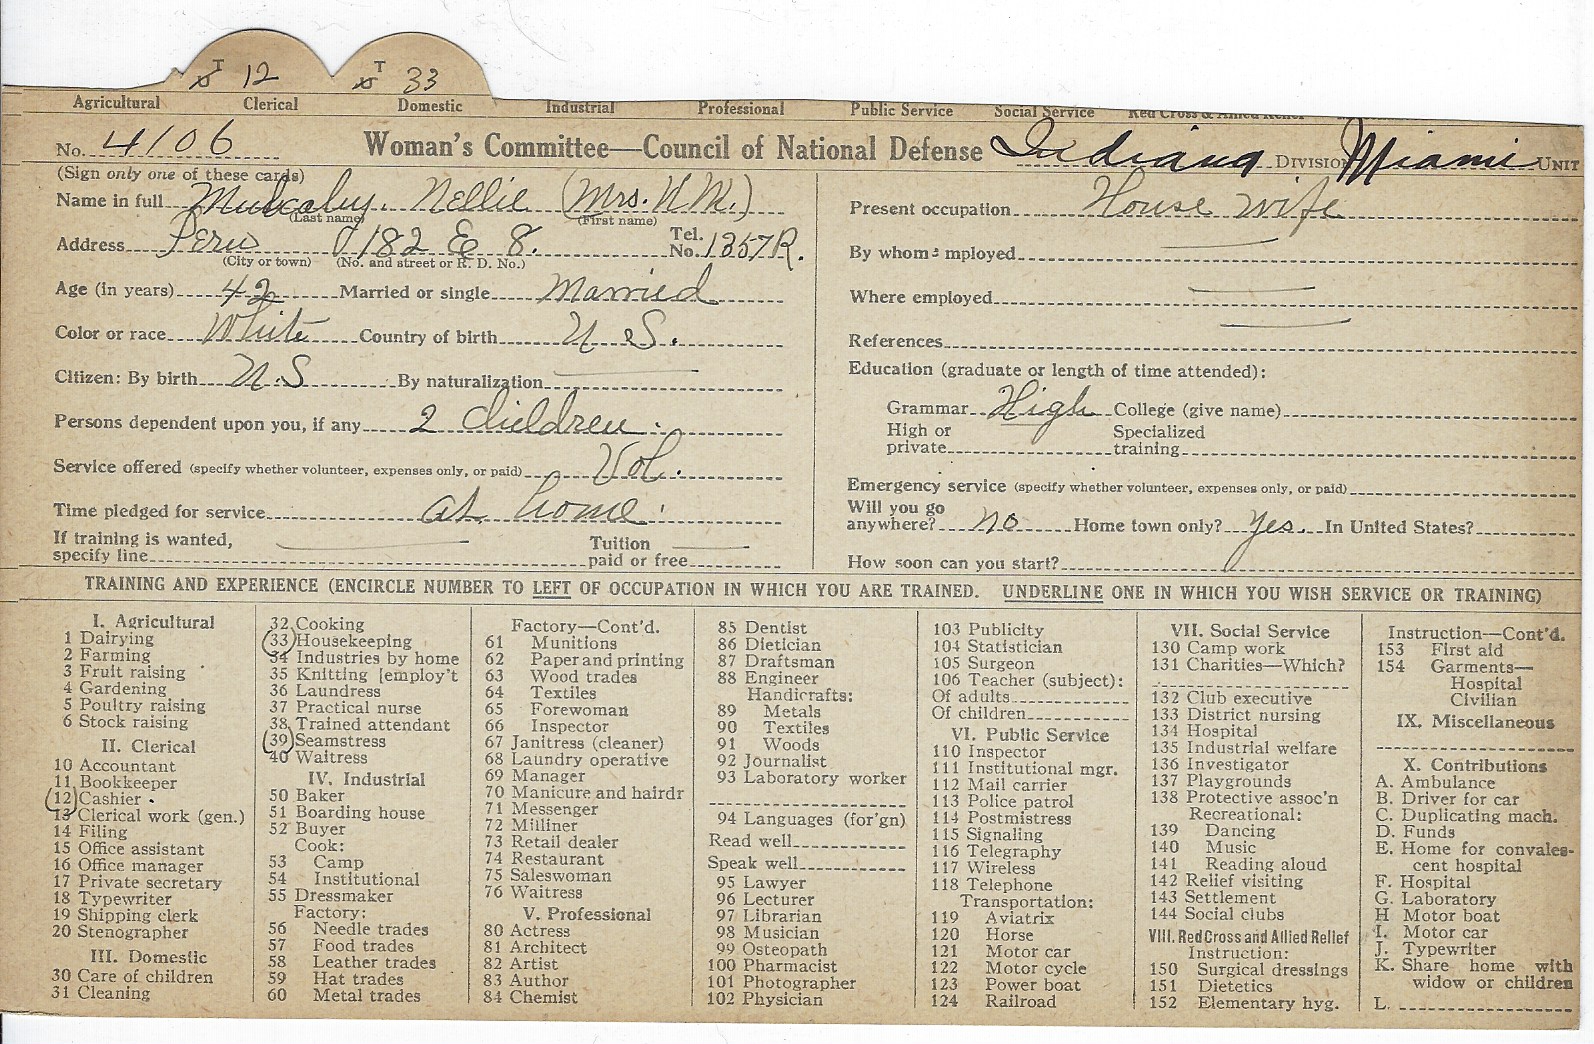 T 12 T 33
Agricultural Clerical Domestic Industrial Professional Public Service Social Service Red Cross & Allied Relief
No. 4106 Woman's Committee—Council of National Defense Indiana Division Miami Unit
(Sign only one of these cards)
Name in full Mulcahy. Nellie (Mrs. W M.)
(Last name) (First name)
Address Peru 182 E 8. Tel. No. 1357R.
(City or town) (No. and street or R. D. No.)
Age (in years) 42 Married or single Married
Color or race White Country of birth U S.
Citizen: By birth U.S By naturalization
Persons dependent upon you, if any 2 children.
Service offered (specify whether volunteer, expenses only, or paid) Vol.
Time pledged for service at home
If training is wanted, specify line Tuition paid or free
Present occupation House wife
By whom employed
Where employed
References
Education (graduate or length of time attended):
Grammar High College (give name)
High or private Specialized training
Emergency service (specify whether volunteer, expenses only, or paid)
Will you go anywhere? no Home town only? Yes. In United States?
How soon can you start?
TRAINING AND EXPERIENCE (ENCIRCLE NUMBER TO LEFT OF OCCUPATION IN WHICH YOU ARE TRAINED. UNDERLINE ONE IN WHICH YOU WISH SERVICE OR TRAINING)
I. Agricultural
1 Dairying
2 Farming
3 Fruit raising
4 Gardening
5 Poultry raising
6 Stock raising
II. Clerical
10 Accountant
11 Bookkeeper
12 Cashier
13 Clerical work (gen.)
14 Filing
15 Office assistant
16 Office manager
17 Private secretary
18 Typewriter
19 Shipping clerk
20 Stenographer
III. Domestic
30 Care of children
31 Cleaning
32 Cooking
33 Housekeeping
34 Industries by home
35 Knitting [employ't
36 Laundress
37 Practical nurse
38 Trained attendant
39 Seamstress
40 Waitress
IV. Industrial
50 Baker
51 Boarding house
52 Buyer
Cook:
53 Camp
54 Institutional
55 Dressmaker
Factory:
56 Needle trades
57 Food trades
58 Leather trades
59 Hat trades
60 Metal trades
Factory—Cont'd.
61 Munitions
62 Paper and printing
63 Wood trades
64 Textiles
65 Forewoman
66 Inspector
67 Janitress (cleaner)
68 Laundry operative
69 Manager
70 Manicure and hairdr
71 Messenger
72 Milliner
73 Retail dealer
74 Restaurant
75 Saleswoman
76 Waitress
V. Professional
80 Actress
81 Architect
82 Artist
83 Author
84 Chemist
85 Dentist
86 Dietician
87 Draftsman
88 Engineer
Handicrafts:
89 Metals
90 Textiles
91 Woods
92 Journalist
93 Laboratory worker
94 Languages (for'gn)
Read well
Speak well
95 Lawyer
96 Lecturer
97 Librarian
98 Musician
99 Osteopath
100 Pharmacist
101 Photographer
102 Physician
103 Publicity
104 Statistician
105 Surgeon
106 Teacher (subject):
Of adults
Of children
VI. Public Service
110 Inspector
111 Institutional mgr.
112 Mail carrier
113 Police patrol
114 Postmistress
115 Signaling
116 Telegraphy
117 Wireless
118 Telephone
Transportation:
119 Aviatrix
120 Horse
121 Motor car
122 Motor cycle
123 Power boat
124 Railroad
VII. Social Service
130 Camp work
131 Charities—Which?
132 Club executive
133 District nursing
134 Hospital
135 Industrial welfare
136 Investigator
137 Playgrounds
138 Protective assoc'n
Recreational:
139 Dancing
140 Music
141 Reading aloud
142 Relief visiting
143 Settlement
144 Social clubs
VIII. Red Cross and Allied Relief
Instruction:
150 Surgical dressings
151 Dietetics
152 Elementary hyg.
Instruction—Cont'd.
153 First aid
154 Garments—
Hospital
Civilian
IX. Miscellaneous
X. Contributions
A. Ambulance
B. Driver for car
C. Duplicating mach.
D. Funds
E. Home for convales-
cent hospital
F. Hospital
G. Laboratory
H Motor boat
I. Motor car
J. Typewriter
K. Share home with
widow or children
L.